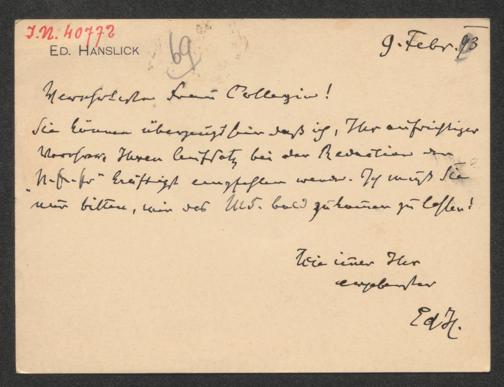 I.N. 40772
ED. HANSLICK
69
9. Febr. 93
Verehrteste Frau Collegin!
Sie können überzeugt sein daß ich, Ihr aufrichtiger
Verehrer, Ihren Aufsatz bei der Redaction der
"N. fr. Pr" kräftigst empfehlen werde. Ich muß Sie
nur bitten, mir das Ms. bald zukommen zu lassen!
Wie immer Ihr
ergebenster
Ed H.